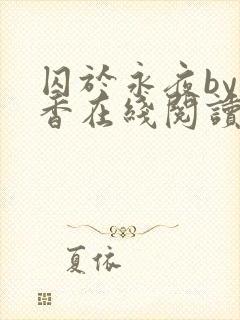 囚於永夜by
香在綫閱讀
夏依